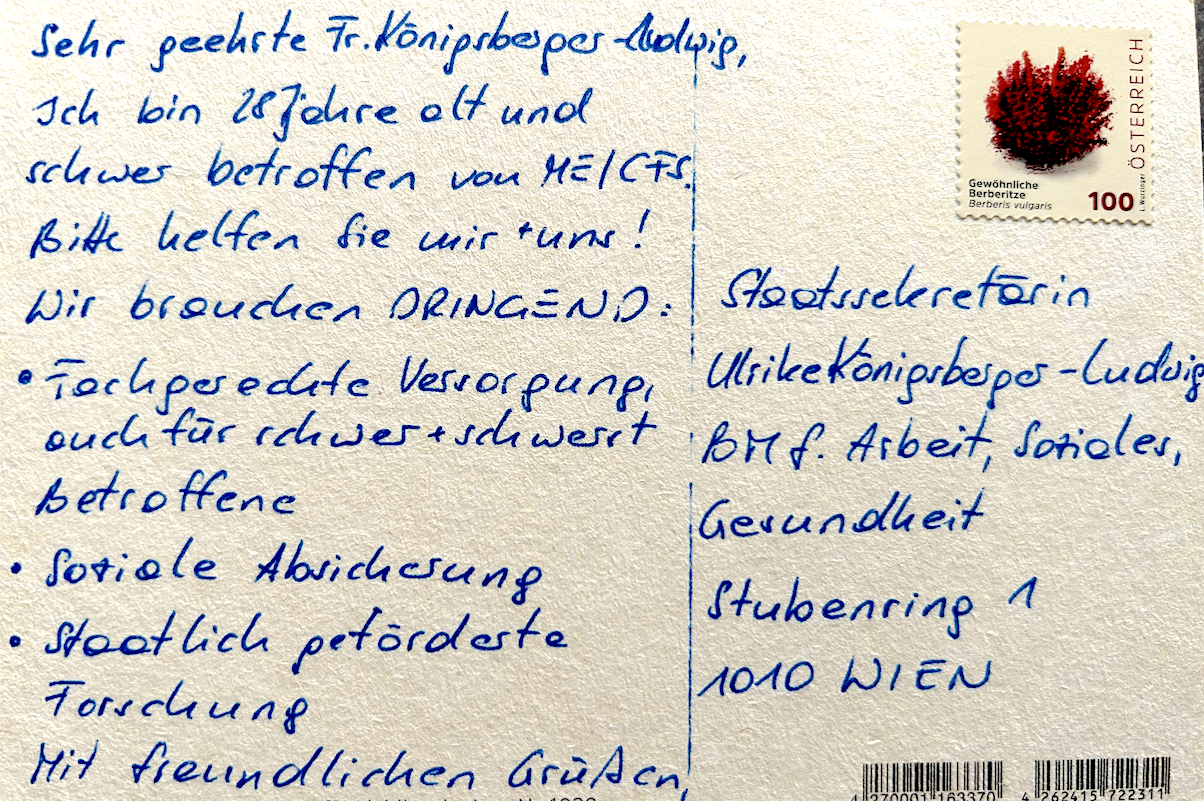 Sehr geehrte Fr. Königsberger-Ludwig,
Ich bin 28 Jahre alt und
schwer betroffen von ME/CFS.
Bitte helfen Sie mir + uns!
Wir brauchen DRINGEND:
• Fachgerechte Versorgung,
auch für schwer + schwerst
Betroffene
• Soziale Absicherung
• Staatlich geförderte
Forschung
Mit freundlichen Grüßen,
ÖSTERREICH
L. Wurzinger
Gewöhnliche
Berberitze
Berberis vulgaris
100
Staatssekretärin
Ulrike Königsberger-Ludwig
BM f. Arbeit, Soziales,
Gesundheit
Stubenring 1
1010 WIEN
4 270001 163370
4 262415 722311